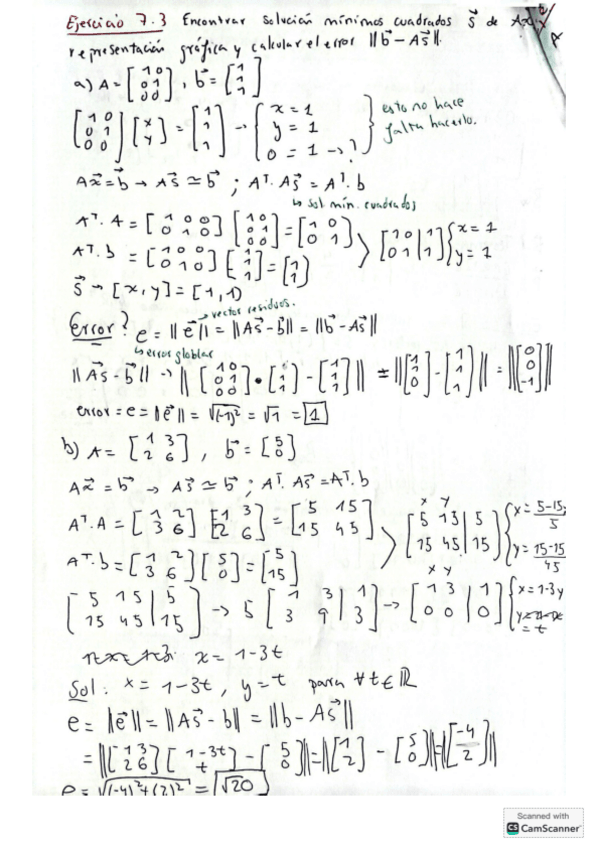 Ejercicio 7.3 Encontrar solución mínimos cuadrados s⃗ de
representación gráfica y calcular el error ||b⃗ - As⃗||.
a) A = [1 0; 0 1; 0 0], b⃗ = [1; 1; 1]
[1 0; 0 1; 0 0] [x; y] = [1; 1; 1] → { x = 1; y = 1; 0 = 1 → ? } esto no hace falta hacerlo.
Ax⃗ = b⃗ → As⃗ ≃ b⃗ ; Aᵀ. As⃗ = Aᵀ. b
↳ sol mín. cuadrados
Aᵀ. A = [1 0 0; 0 1 0] [1 0; 0 1; 0 0] = [1 0; 0 1]
Aᵀ. b = [1 0 0; 0 1 0] [1; 1; 1] = [1; 1]
> [1 0 | 1; 0 1 | 1] { x = 1; y = 1
s⃗ → [x, y] = [1, 1)
→ vector residuos.
Error? e = ||e⃗|| = ||As⃗ - b⃗|| = ||b⃗ - As⃗||
↳ error globlar
||As⃗ - b⃗|| → || [1 0; 0 1; 0 0] • [1; 1] - [1; 1; 1] || = || [1; 1; 0] - [1; 1; 1] || = || [0; 0; -1] ||
error = e = ||e⃗|| = √(-1)² = √1 = 1
b) A = [1 3; 2 6], b⃗ = [5; 0]
Ax⃗ = b⃗ → As⃗ ≃ b⃗ ; Aᵀ. As⃗ = Aᵀ. b
Aᵀ. A = [1 2; 3 6] [1 3; 2 6] = [5 15; 15 45]
Aᵀ. b = [1 2; 3 6] [5; 0] = [5; 15]
x y
> [5 15 | 5; 15 45 | 15] { x = 5-15y/5; y = 15-15/45
x y
[5 15 | 5; 15 45 | 15] → 5 [1 3 | 1; 3 9 | 3] → [1 3 | 1; 0 0 | 0] { x = 1-3y; = t
x = 1-3t
Sol: x = 1-3t, y = t para ∀t∈ℝ
e = ||e⃗|| = ||As⃗ - b|| = ||b - As⃗||
= || [1 3; 2 6] [1-3t; t] - [5; 0] || = || [1; 2] - [5; 0] || = || [-4; 2] ||
e = √(-4)²+(2)² = √20
Scanned with
CS CamScanner